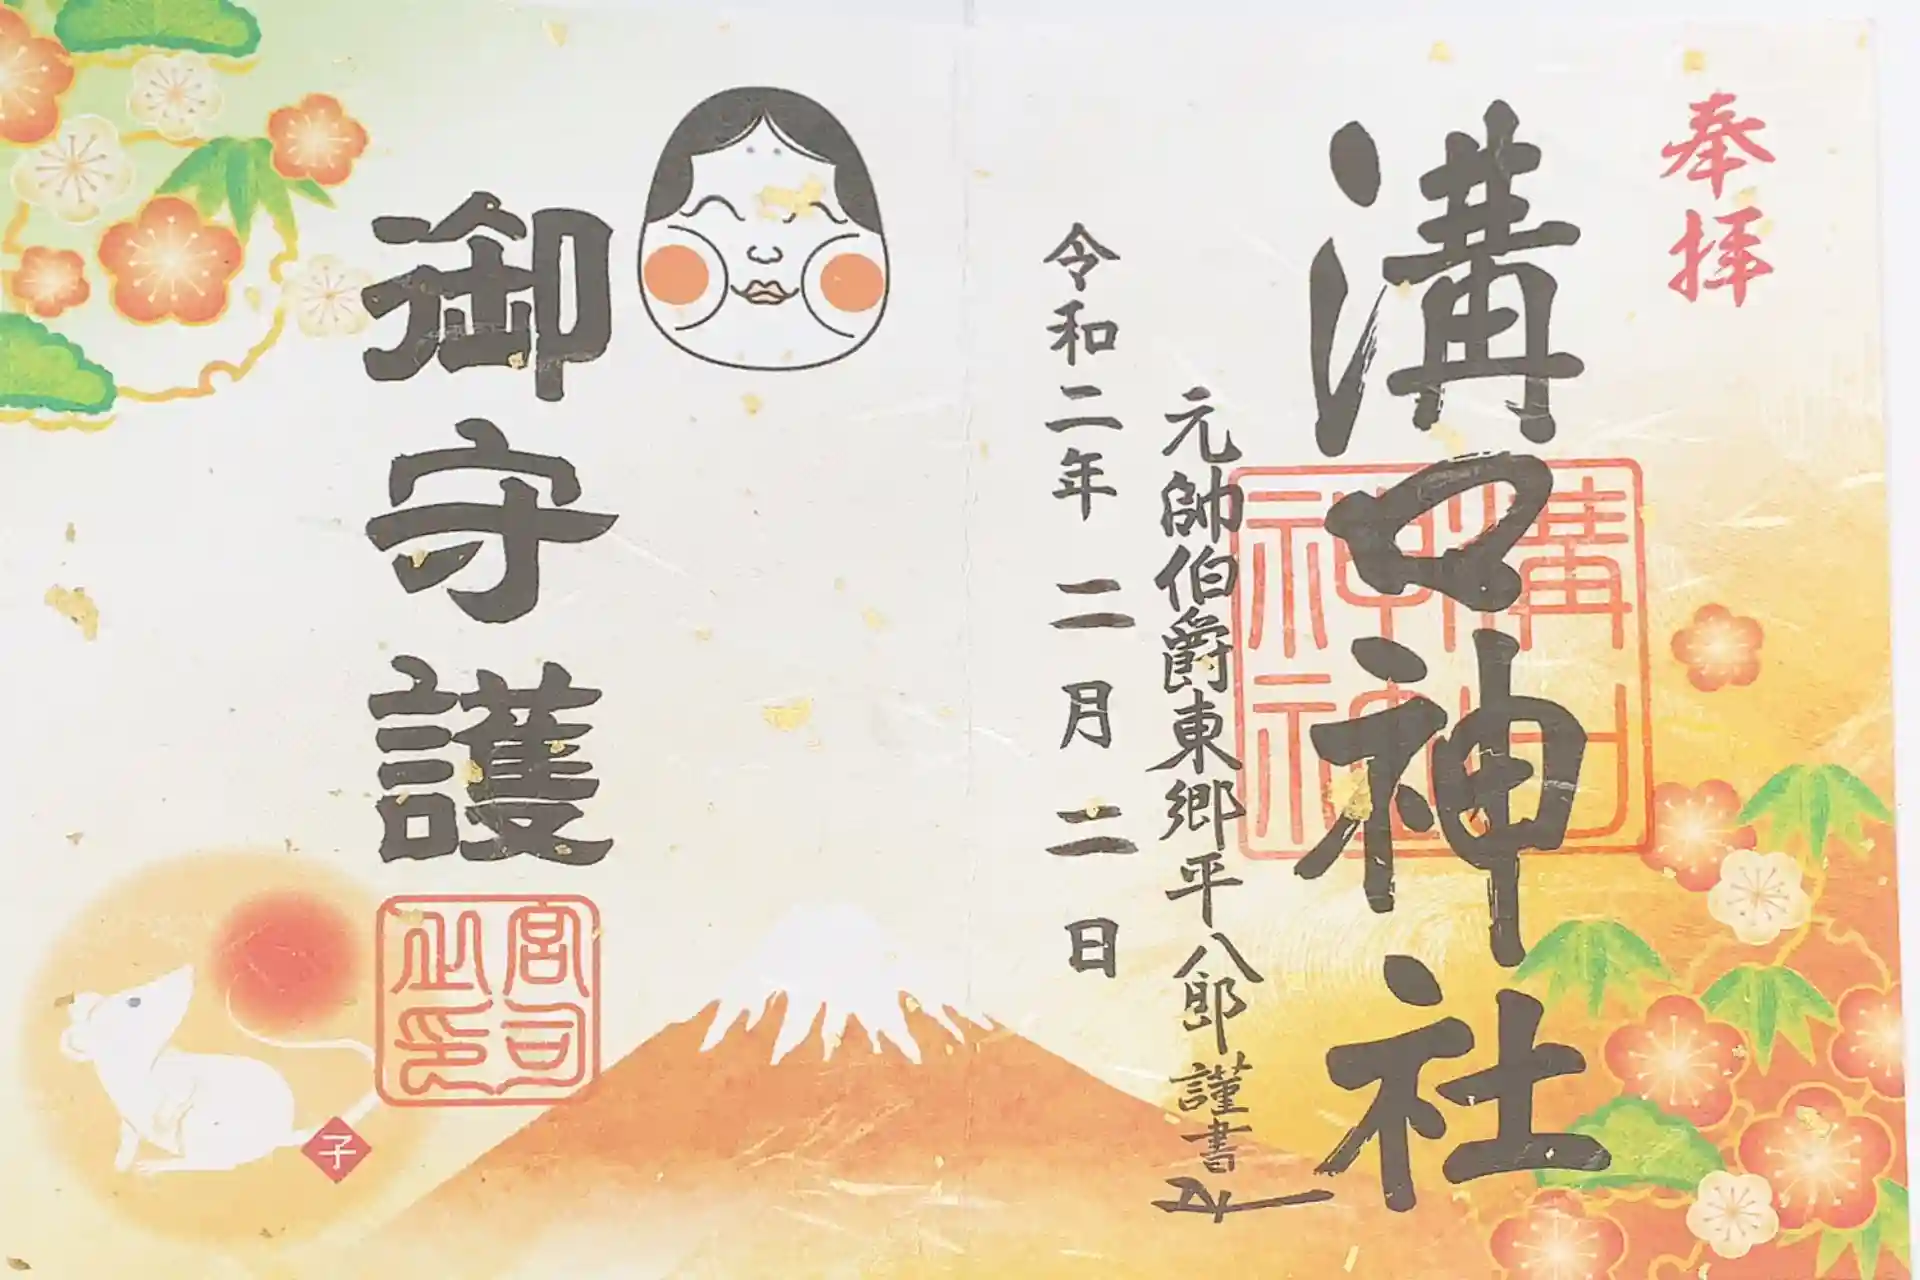 奉拝
溝口神社
溝口神社
元帥伯爵東郷平八郎謹書
令和二年二月二日
御守護
宮司之印
子